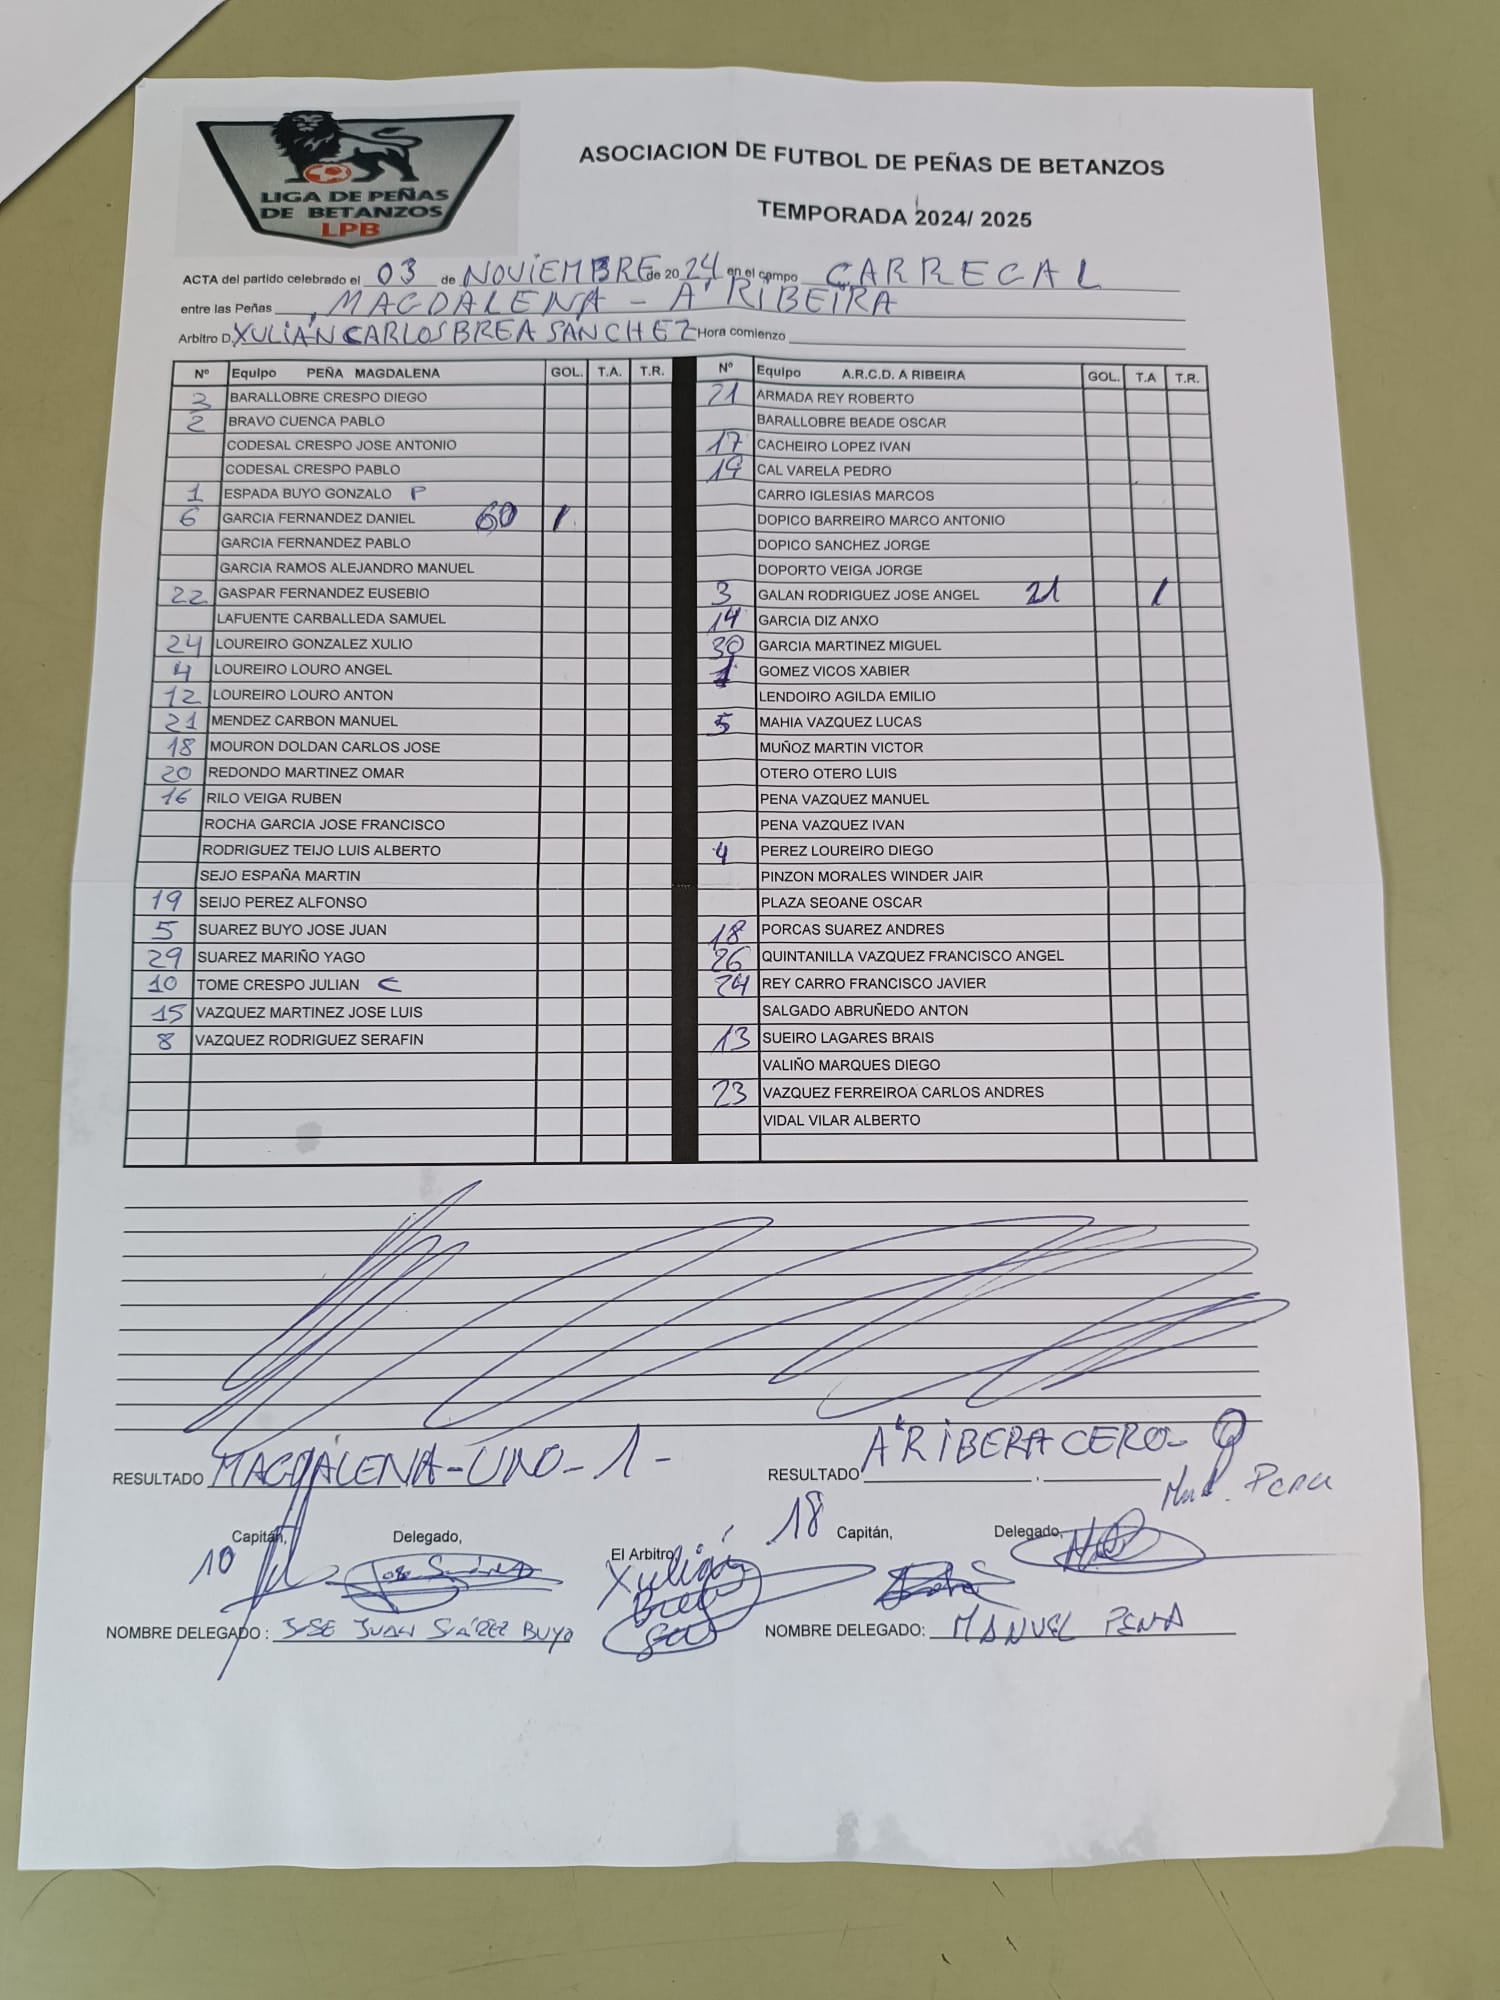 LIGA DE PEÑAS
DE BETANZOS
LPB
ASOCIACION DE FUTBOL DE PEÑAS DE BETANZOS
TEMPORADA 2024/ 2025
ACTA del partido celebrado el 03 de NOVIEMBRE de 2024 en el campo CARREGAL
entre las Peñas MAGDALENA - A RIBEIRA
Arbitro D. XULIÁN CARLOS BREA SANCHEZ Hora comienzo
Nº Equipo PEÑA MAGDALENA GOL. T.A. T.R. Nº Equipo A.R.C.D. A RIBEIRA GOL. T.A T.R.
3 BARALLOBRE CRESPO DIEGO 21 ARMADA REY ROBERTO
2 BRAVO CUENCA PABLO BARALLOBRE BEADE OSCAR
CODESAL CRESPO JOSE ANTONIO 17 CACHEIRO LOPEZ IVAN
CODESAL CRESPO PABLO 19 CAL VARELA PEDRO
1 ESPADA BUYO GONZALO P CARRO IGLESIAS MARCOS
6 GARCIA FERNANDEZ DANIEL 60 1 DOPICO BARREIRO MARCO ANTONIO
GARCIA FERNANDEZ PABLO DOPICO SANCHEZ JORGE
GARCIA RAMOS ALEJANDRO MANUEL DOPORTO VEIGA JORGE
22 GASPAR FERNANDEZ EUSEBIO 3 GALAN RODRIGUEZ JOSE ANGEL 21 1
LAFUENTE CARBALLEDA SAMUEL 14 GARCIA DIZ ANXO
24 LOUREIRO GONZALEZ XULIO 30 GARCIA MARTINEZ MIGUEL
4 LOUREIRO LOURO ANGEL 1 GOMEZ VICOS XABIER
12 LOUREIRO LOURO ANTON LENDOIRO AGILDA EMILIO
21 MENDEZ CARBON MANUEL 5 MAHIA VAZQUEZ LUCAS
18 MOURON DOLDAN CARLOS JOSE MUÑOZ MARTIN VICTOR
20 REDONDO MARTINEZ OMAR OTERO OTERO LUIS
16 RILO VEIGA RUBEN PENA VAZQUEZ MANUEL
ROCHA GARCIA JOSE FRANCISCO PENA VAZQUEZ IVAN
RODRIGUEZ TEIJO LUIS ALBERTO 4 PEREZ LOUREIRO DIEGO
SEJO ESPAÑA MARTIN PINZON MORALES WINDER JAIR
19 SEIJO PEREZ ALFONSO PLAZA SEOANE OSCAR
5 SUAREZ BUYO JOSE JUAN 18 PORCAS SUAREZ ANDRES
29 SUAREZ MARIÑO YAGO 26 QUINTANILLA VAZQUEZ FRANCISCO ANGEL
10 TOME CRESPO JULIAN C 24 REY CARRO FRANCISCO JAVIER
15 VAZQUEZ MARTINEZ JOSE LUIS SALGADO ABRUÑEDO ANTON
8 VAZQUEZ RODRIGUEZ SERAFIN 13 SUEIRO LAGARES BRAIS
VALIÑO MARQUES DIEGO
23 VAZQUEZ FERREIROA CARLOS ANDRES
VIDAL VILAR ALBERTO
RESULTADO MAGDALENA-UNO-1- RESULTADO A RIBERA CERO-0
Pena
Capitán, Delegado, El Arbitro, 18 Capitán, Delegado,
10 Xulián
Brea
NOMBRE DELEGADO: JOSE JUAN SUÁREZ BUYO NOMBRE DELEGADO: MANUEL PENA